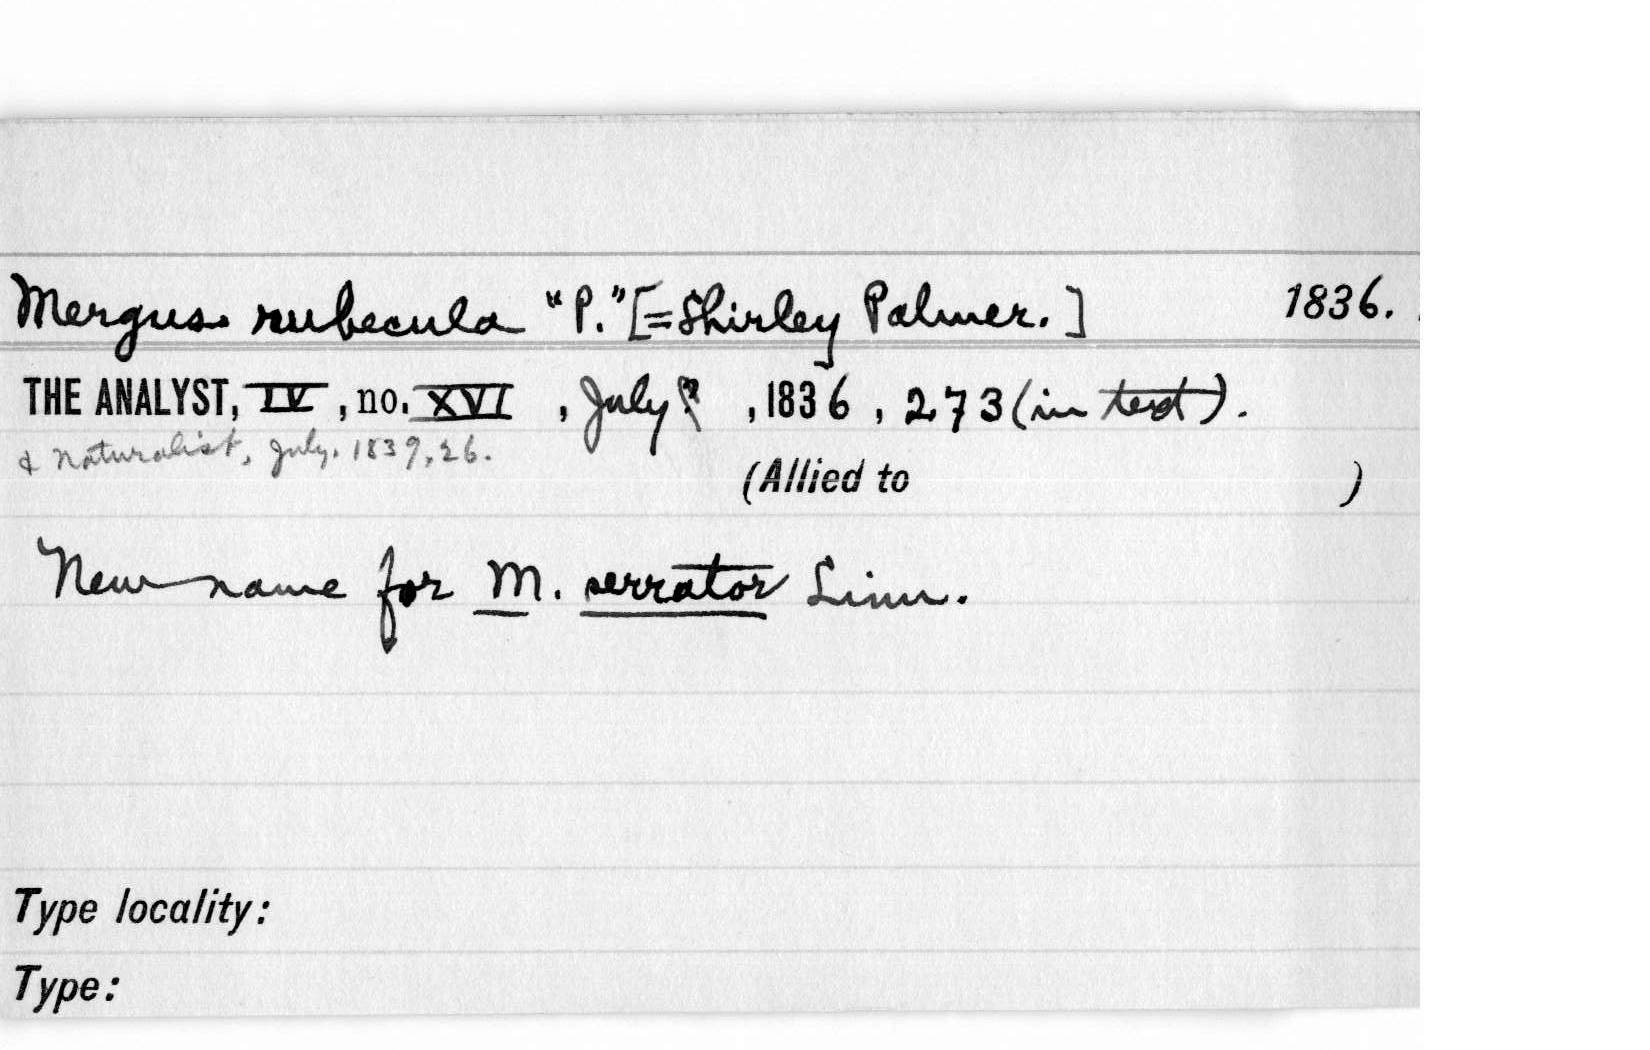 Mergus rubecula "P." [=Shirley Palmer.] 1836.
THE ANALYST, IV, no. XVI, July?, 1836, 273 (in text).
& Naturalist, July, 1839, 26.
(Allied to )
New name for M. serrator Linn.
Type locality:
Type: